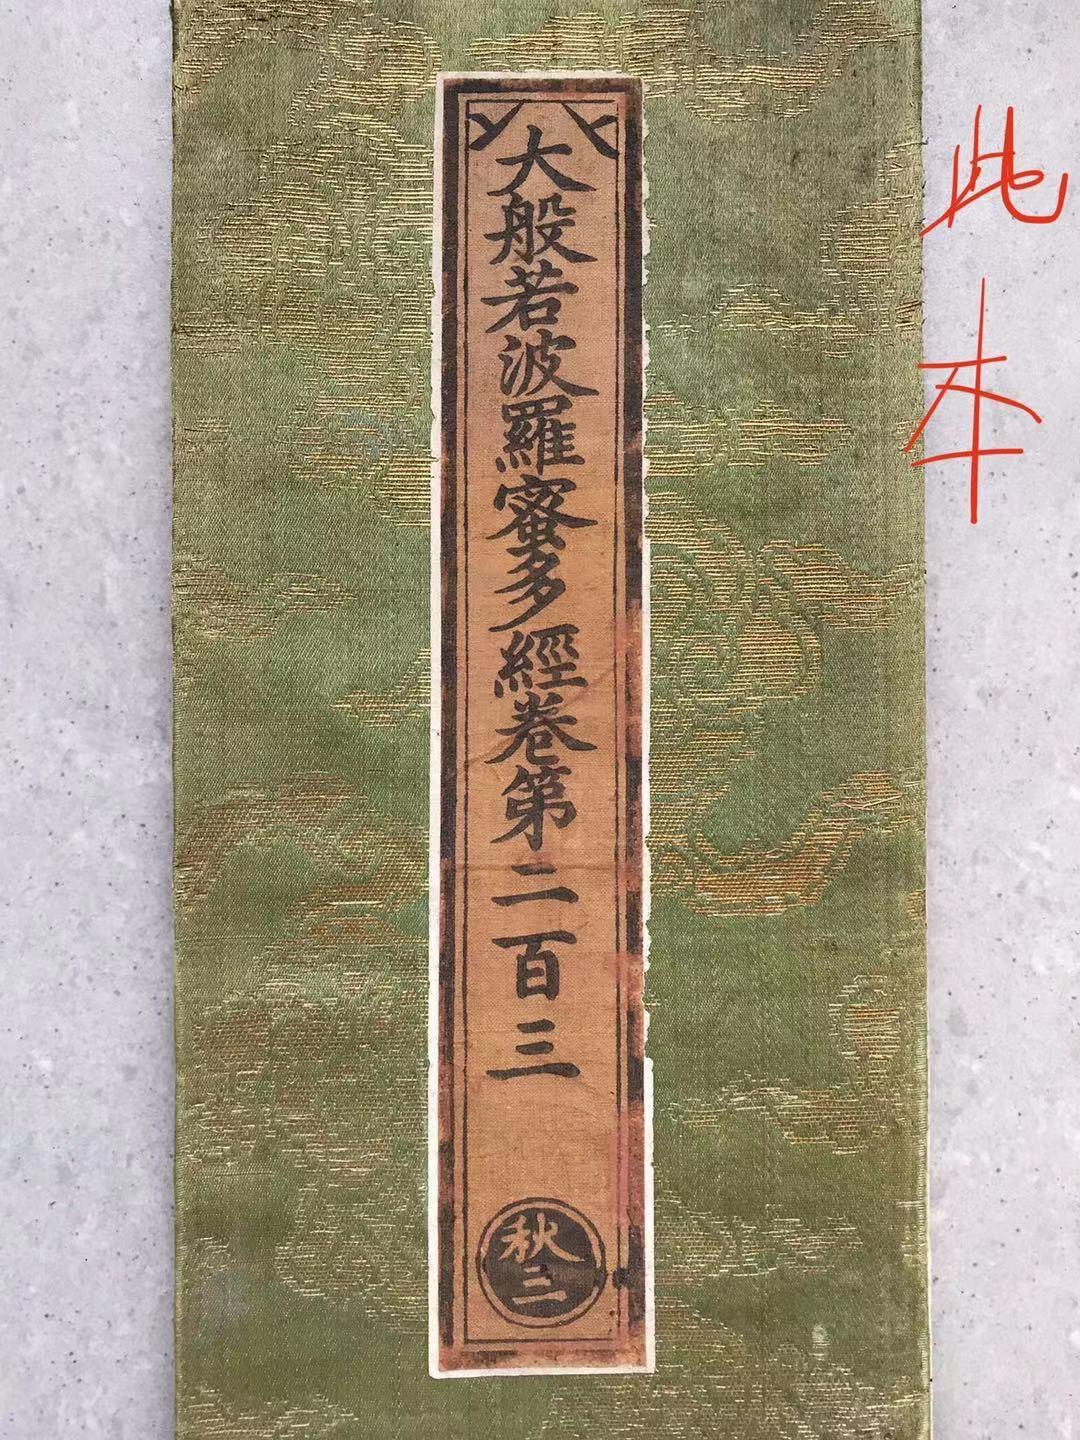 大般若波羅蜜多經卷第二百三
秋三
此本